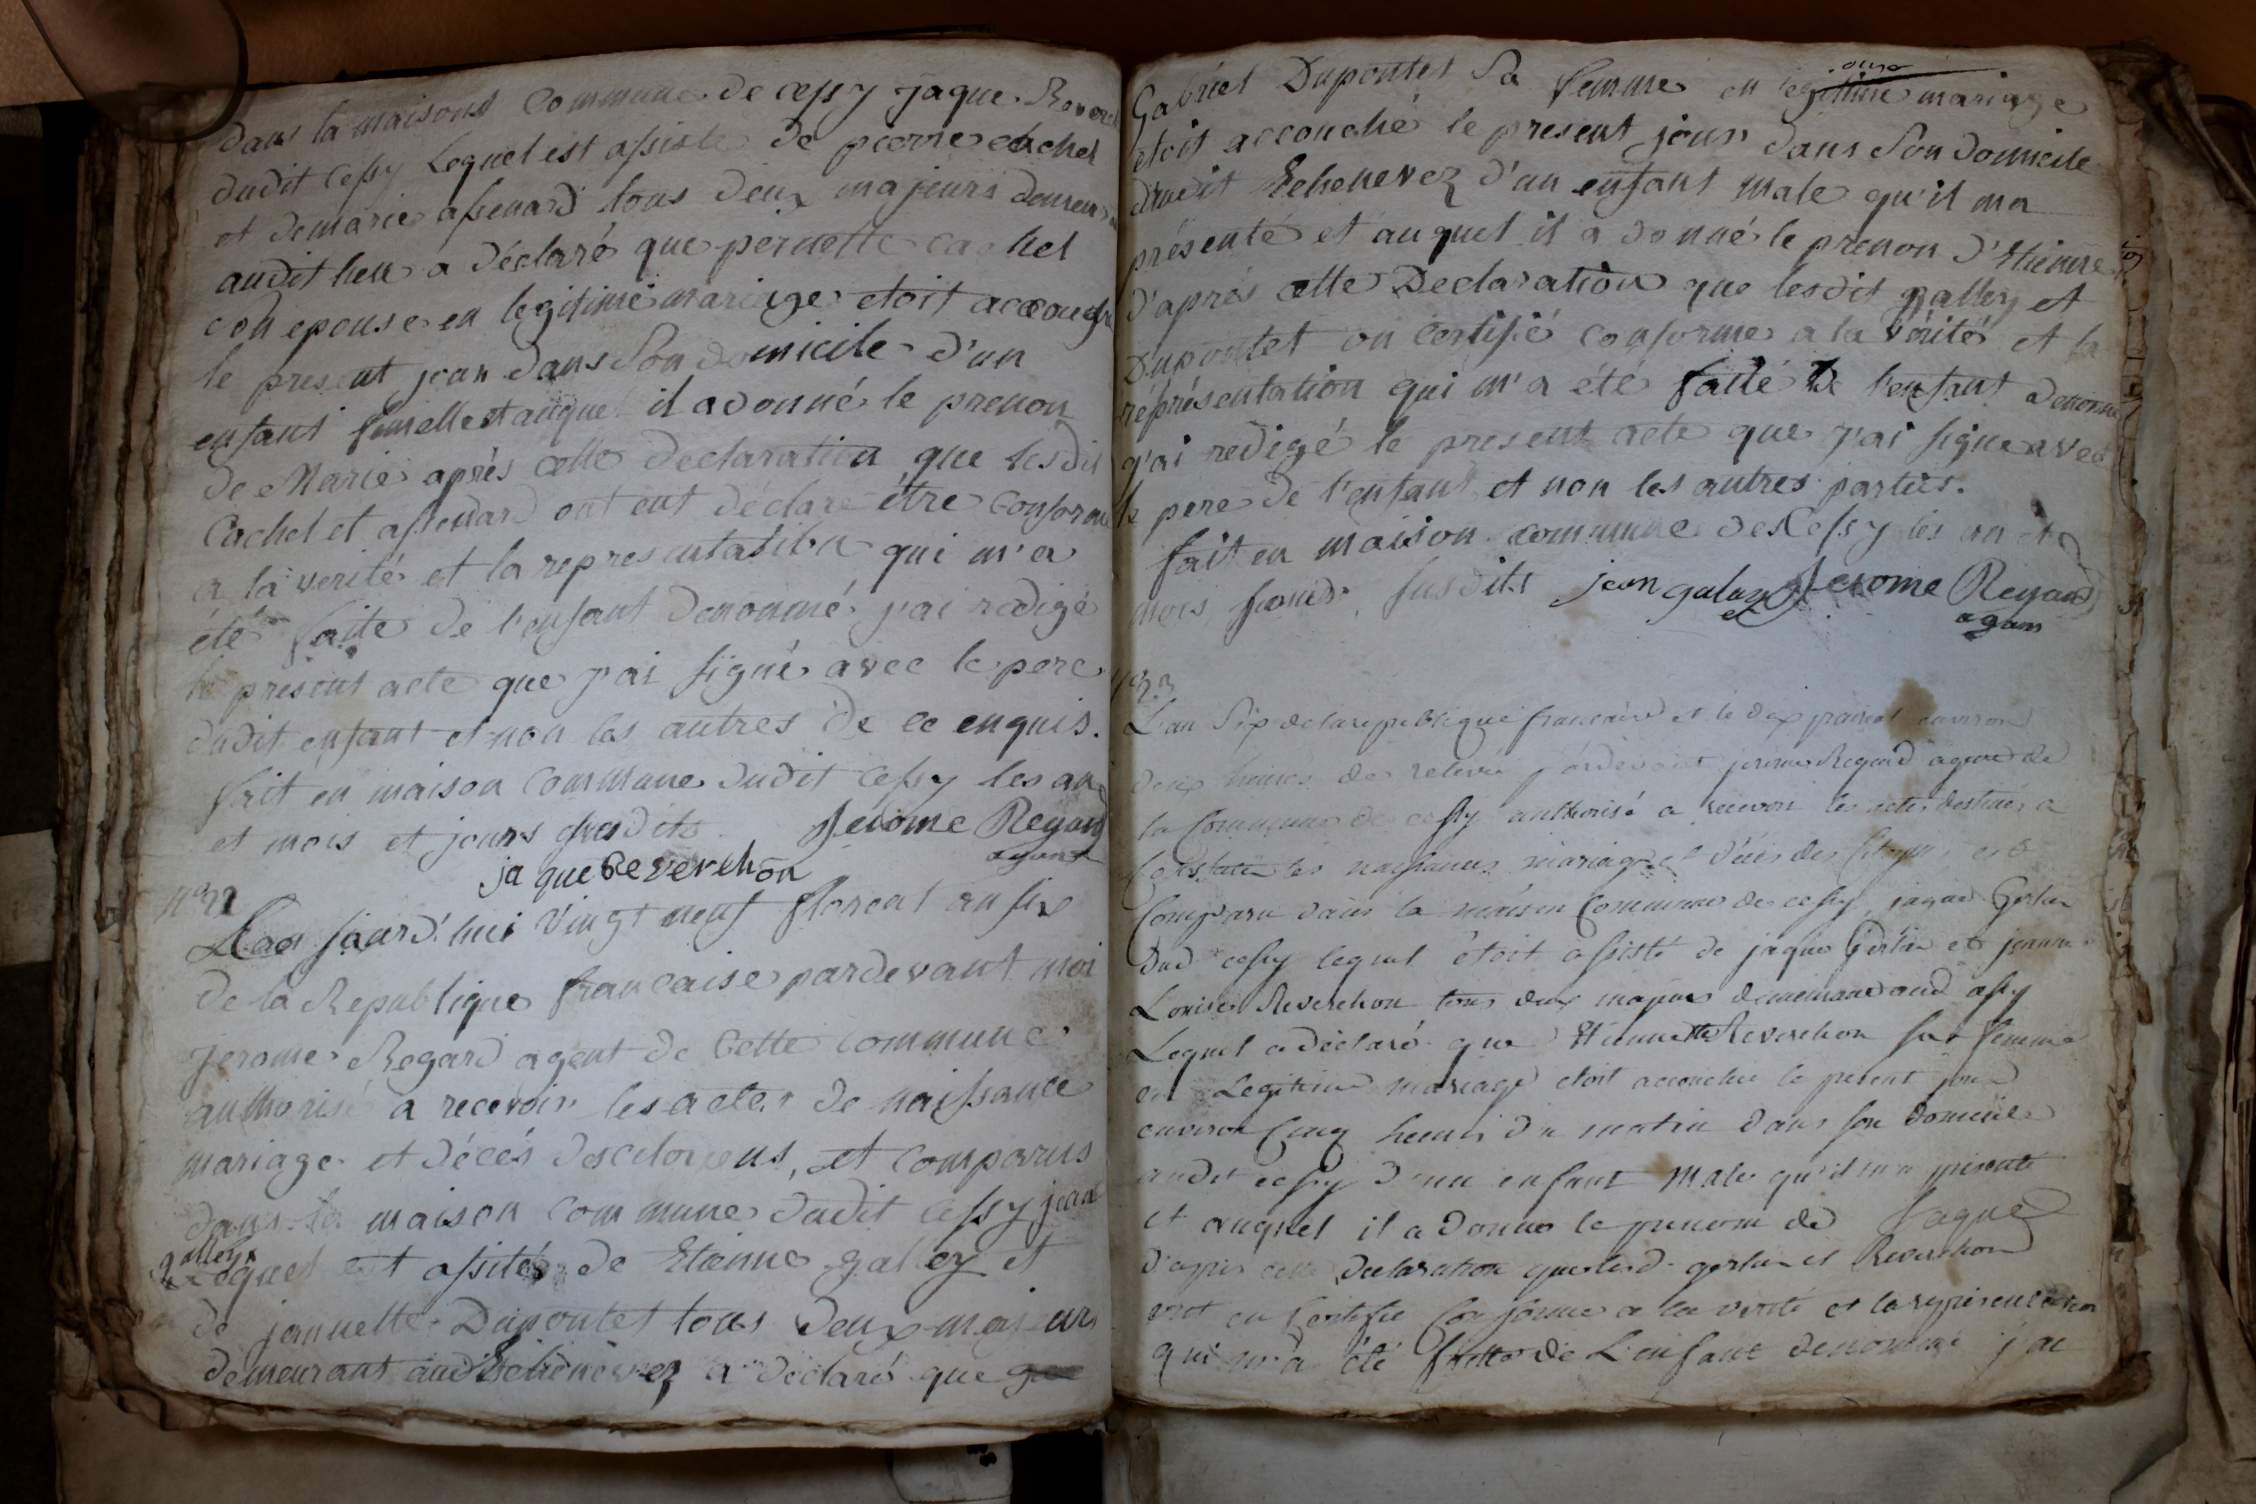 dans la maisons Commune de cessy jaque Reverch
dudit Cessy Lequel est assisté de pierre cachel
et de marie assenard tous deux majeurs demeur
audit lieu a déclaré que pernette cachel
son epouse en legitime mariage etoit accouch
le present jour dans Son domicile d'un
enfant femelle et auquel il a donné le prenon
de Marie aprés cette declaration que lesdit
Cachel et assenard ont ent déclaré être conforme
a la verité et la representation qui m'a
été faite de l'enfant denommé j'ai redigé
le présent acte que j'ai signé avec le pere
dudit enfant et non les autres de ce enquis.
fait en maison Commune dudit Cessy les an
et mois et jours susdits Jerome Regard
jaque Reverchon agent
n° 22
aujourd'hui vingt neuf floreal an six
de la Republique francaise pardevant moi
jerome Regard agent de Cette commune
authorisé a recevoir les actes de naissance
mariage et décés des citoyens, et comparus
dans la maison commune dudit Cessy jean
galley
Lequel est assités de Etienne galley et
de jannette Dupontet tous deux majeurs
demeurant aud Echenevez a déclaré que
Gabriel Dupontet Sa femme en legitime mariage
etoit accouché le present jour dans Son domicile
dudit Echenevez d'un enfant male qu'il ma
présenté et auquel il a donné le prenon d'Etienne
d'aprés cette Declaration que lesdit galley et
Dupontet on certifié conforme a la vérité et la
réprésentation qui m'a été faite de l'enfant denommé
j'ai redigé le present acte que j'ai signe avec
le pere de l'enfant et non les autres parties.
fait en maison commune de Cessy les an et
mois jours susdits jean galay Jerome Regard
agent
n° 23
L'an Six de la republique francaise et le dix prairial environ
deux heures de relevé pardevant jerome Regard agent de
la Commune de cessy authorisé a recevoir les actes destinés a
Constater les naissances mariage et décès des Citoyens est
Comparu dans la maison Commune de cessy jaque Gerlier
dud cessy lequel étoit assisté de jaque Gerlier et jeanne
Louise Reverchon tous deux majeurs demeurand aud cessy
Lequel a déclaré que Etiennette Reverchon sa femme
en Legitime mariage etoit accouchée le present jour
environ Cinq heures du matin dans son domicile
audit cessy d'un enfant Male qu'il m'a présenté
et auquel il a donné le prenom de Jaque
d'apres cette Declaration que lesd. gerlier et Reverchon
mot en Certifié Conforme a la verité et la representation
qui m'a été faitte de L'enfant denommé j'ai